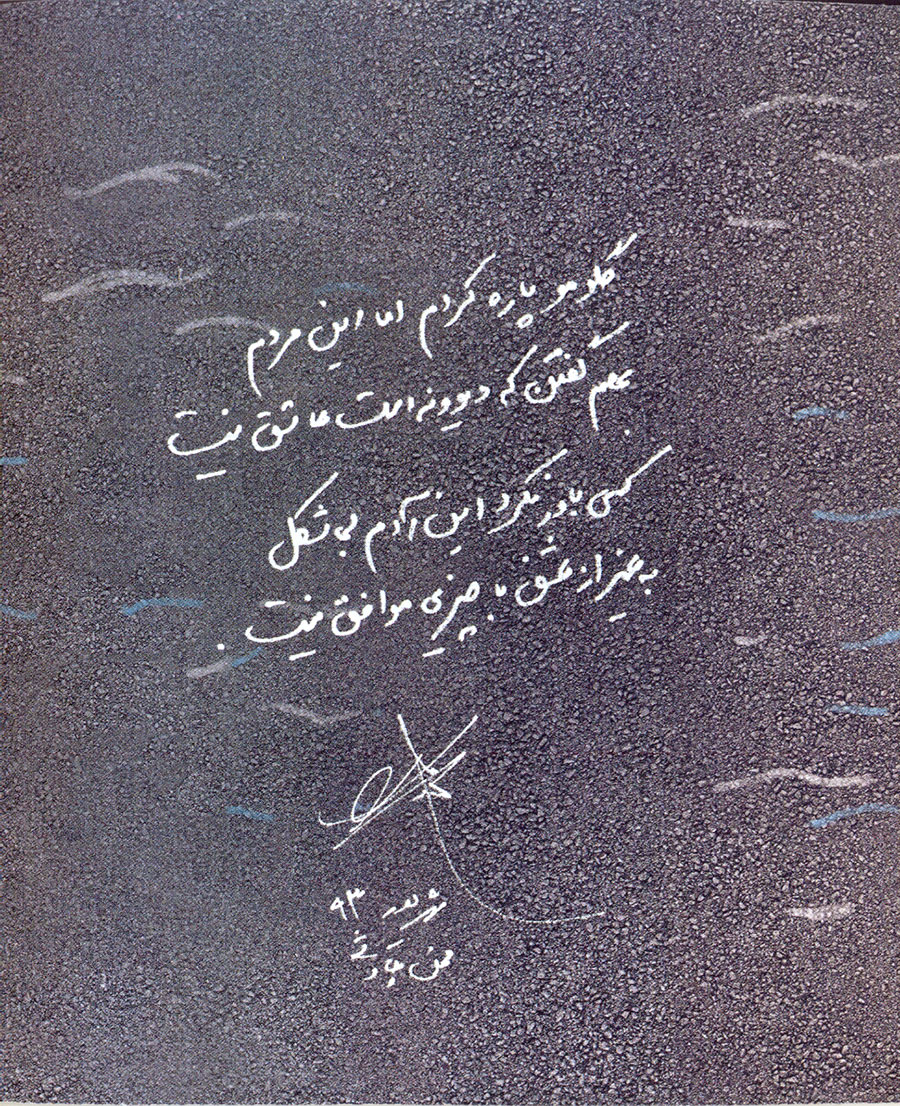 گلومو پاره کردم اما این مردم
بهم گفتن که دیوونه است عاشق نیست
کسی باور نکرد این آدم بی شکل
به غیر از عشق با چیزی موافق نیست .
شهریور ۹۳
محسن چاوشی